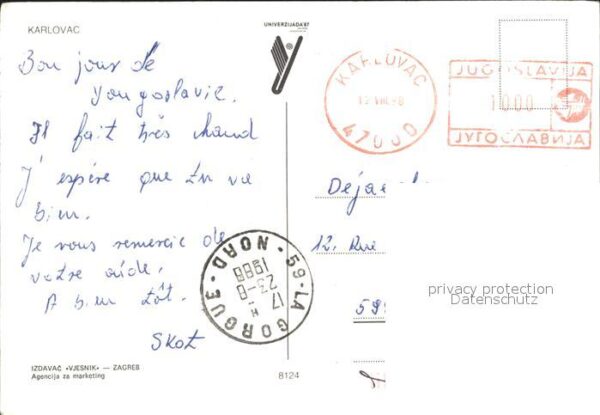 KARLOVAC
UNIVERZIJADA '87
Bon jour de
Yougoslavie.
Il fait très chaud
J'espère que tu va
bien.
Je vous remercie de
votre aide.
A bien tôt.
Skot
KARLOVAC
47000
JUGOSLAVIJA
1000
ЈУГОСЛАВИЈА
59-LA GORGUE-NORD
17 H
23-8
1988
Dejae
12. Rue
59
privacy protection
Datenschutz
IZDAVAČ «VJESNIK» — ZAGREB
Agencija za marketing
8124